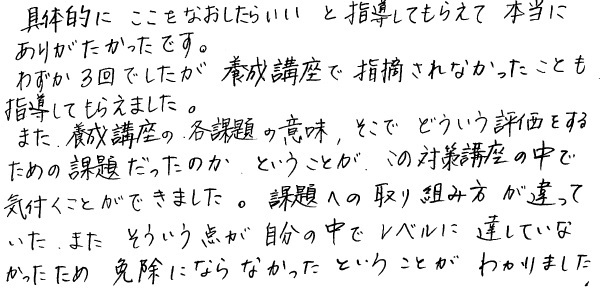 具体的に ここをなおしたらいい と指導してもらえて 本当に
ありがたかったです。
わずか3回でしたが 養成講座で 指摘されなかったことも
指導してもらえました。
また、養成講座の 各課題の意味、そこで どういう評価をする
ための課題だったのか、ということが、この対策講座の中で
気付くことができました。課題への取り組み方が違って
いた、また そういう点が 自分の中で レベルに 達していな
かったため 免除にならなかったということが わかりました